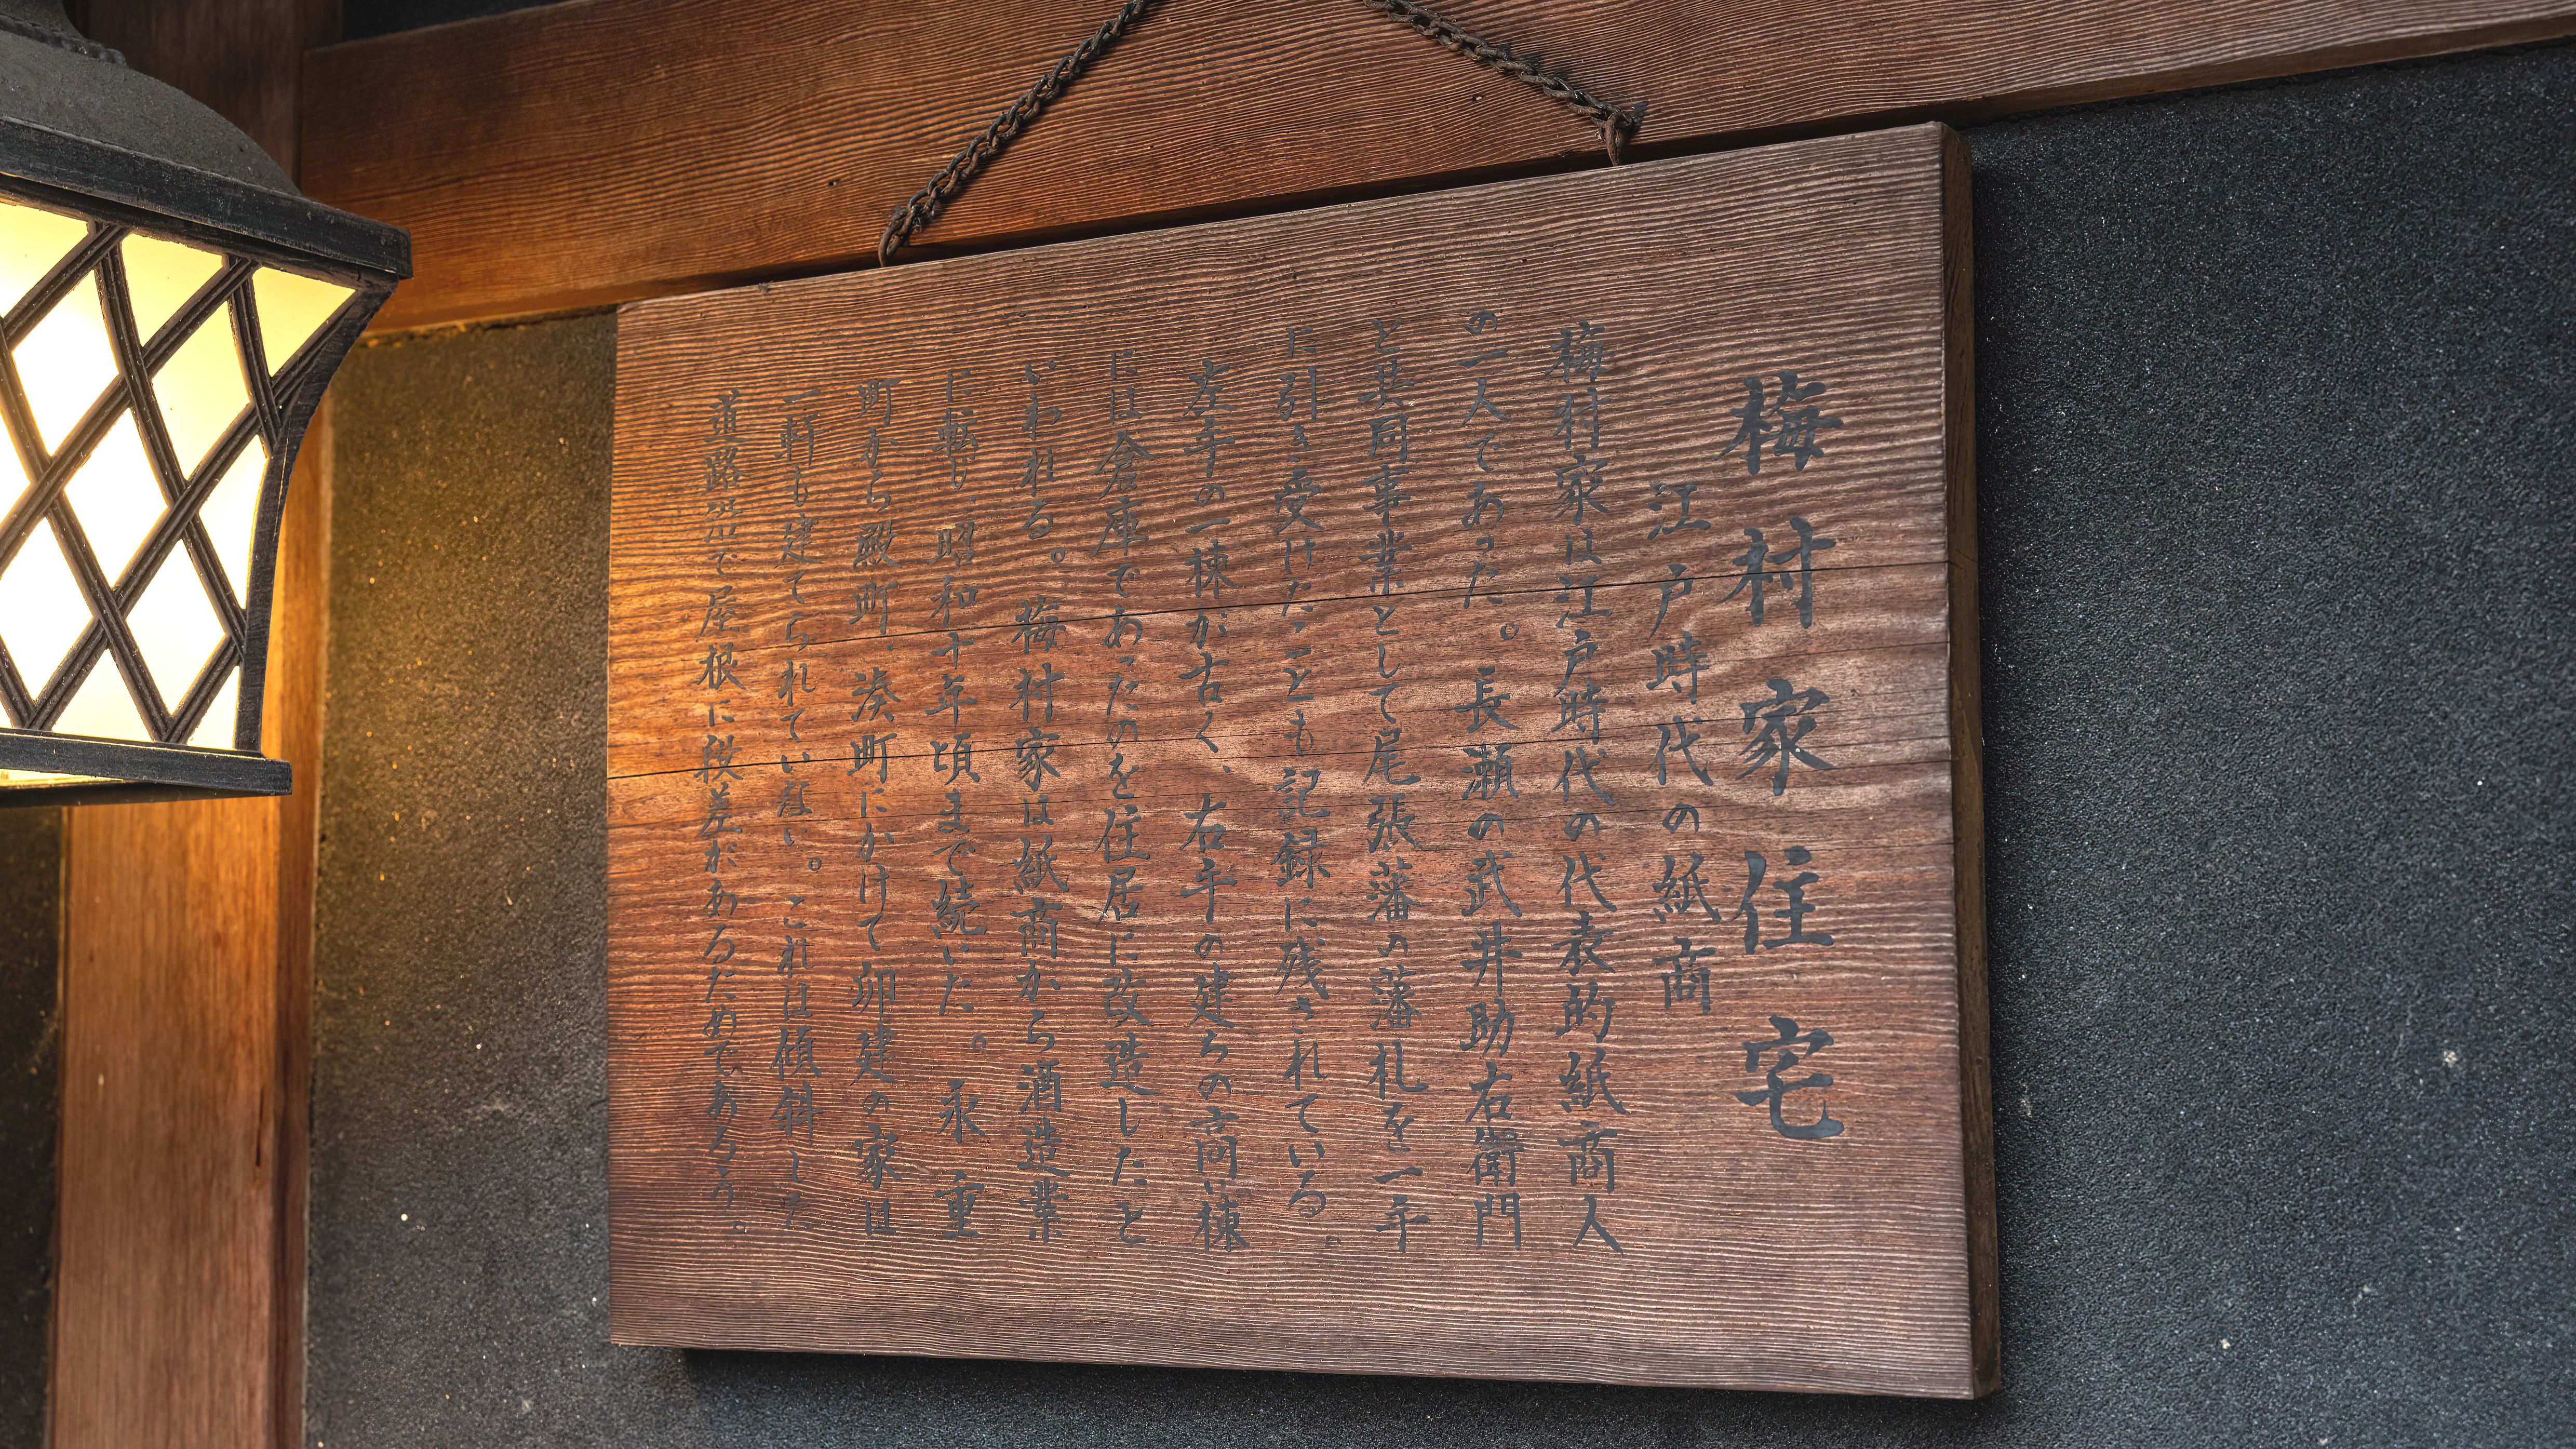 梅村家住宅
江戸時代の紙商
梅村家は江戸時代の代表的紙商人
の一人であった。長瀬の武井助右衛門
と共同事業として尾張藩の藩札を一手
に引き受けたことも記録に残されている。
左手の一棟が古く、右手の建ちの高い棟
には倉庫であったのを住居に改造したと
いわれる。梅村家は紙商から酒造業
に転じ、昭和十年頃まで続いた。永重
町から殿町、湊町にかけて卯建の家は
一軒も建てられていない。これは傾斜した
道路沿で屋根に段差があるためであろう。